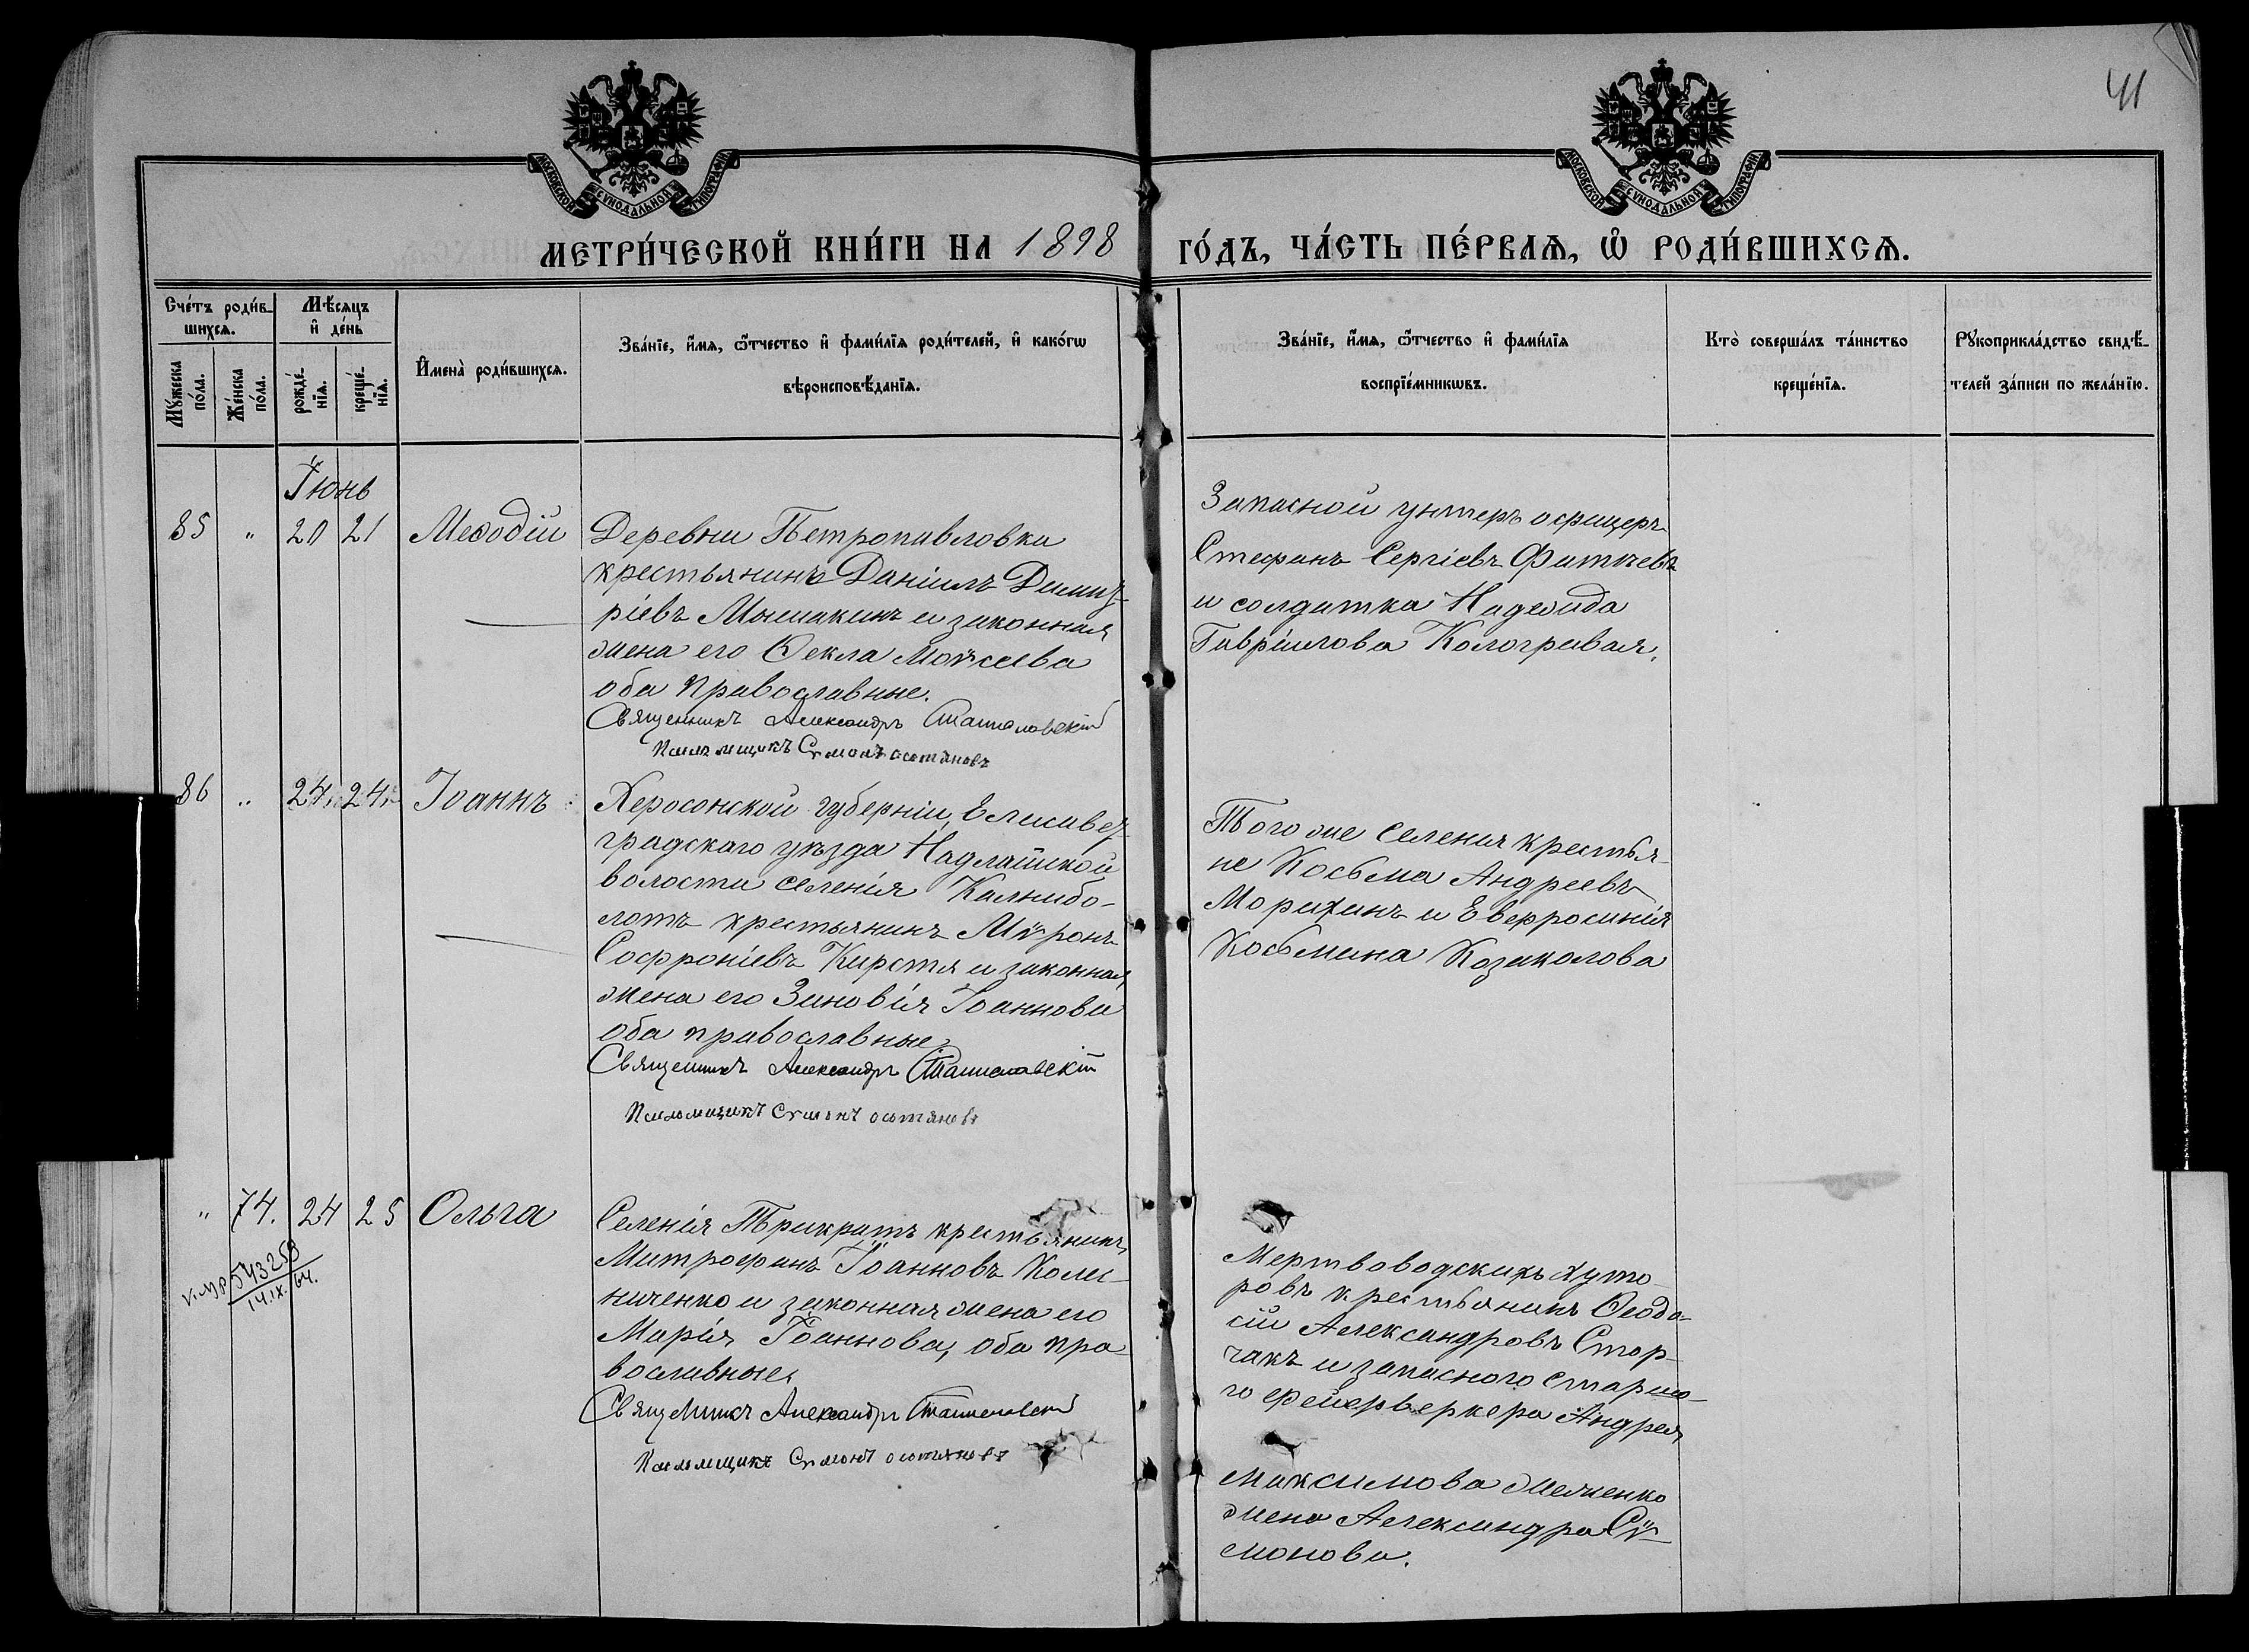 41
МОСКОВСКОЙ СѴНОДАЛЬНОЙ ТИПОГРАФІИ
МОСКОВСКОЙ СѴНОДАЛЬНОЙ ТИПОГРАФІИ
МЕТРИ́ЧЕСКОЙ КНИ́ГИ НА 1898 ГО́ДЪ, ЧА́СТЬ ПЕ́РВАѦ, Ѡ҆ РОДИ́ВШИХСѦ.
Сче́тъ роди́в-
шихсѧ.
Мꙋ́жеска по́ла.
Же́нска по́ла.
Мѣ́сѧцъ
и҆ де́нь
рожде́-
нїѧ.
креще́-
нїѧ.
И҆мена̀ роди́вшихсѧ.
Зва́нїе, и҆́мѧ, ѻ҆́тчество и҆ фами́лїѧ роди́телей, и҆ како́гѡ
вѣроисповѣ́данїѧ.
Зва́нїе, и҆́мѧ, ѻ҆́тчество и҆ фами́лїѧ
воспрїе́мникѡвъ.
Кто̀ соверша́лъ та́инство
креще́нїѧ.
Рꙋкоприкла́дство свидѣ́-
телей за́писи по жела́нїю.
Іюнь
85 " 20 21 Меѳодій
Деревни Петропавловки
крестьянинъ Даніилъ Димит-
ріевъ Мышакинъ и законная
жена его Ѳекла Моѵсеева
оба православные.
Священникъ Александръ Станиславскій
Псаломщикъ Сѵмонъ Остяновъ
Запасной унтеръ офицеръ
Стефанъ Сергіевъ Фатѣевъ
и солдатка Надежда
Гавріилова Кологривая.
86 " 24 24 Іоаннъ
Херсонской губерніи, Елисавет-
градскаго уѣзда Надлацкой
волости селенія Калнибо-
лотъ крестьянинъ Мѵронъ
Софроніевъ Кирстя и законная
жена его Зиновія Іоаннова
оба православные,
Священникъ Александръ Станиславскій
Псаломщикъ Сѵмонъ Остяновъ
Того же селенія крестья-
не Косьма Андреевъ
Морихинъ и Евфросинія
Косьмина Козаколова
" 74. 24 25 Ольга
543258
14.IX.64.
Селенія Трикратъ крестьянинъ
Митрофанъ Іоанновъ Колес-
ниченко и законная жена его
Марія Іоаннова, оба пра-
вославные.
Священникъ Александръ Станиславскій
Псаломщикъ Сѵмонъ Остяновъ
Мертвоводскихъ хуто-
ровъ крестьянинъ Ѳеодо-
сій Александровъ Стор-
чакъ и запасного старша-
го фейерверкера Андрея
Максимова
жена Александра Сѵ-
монова.